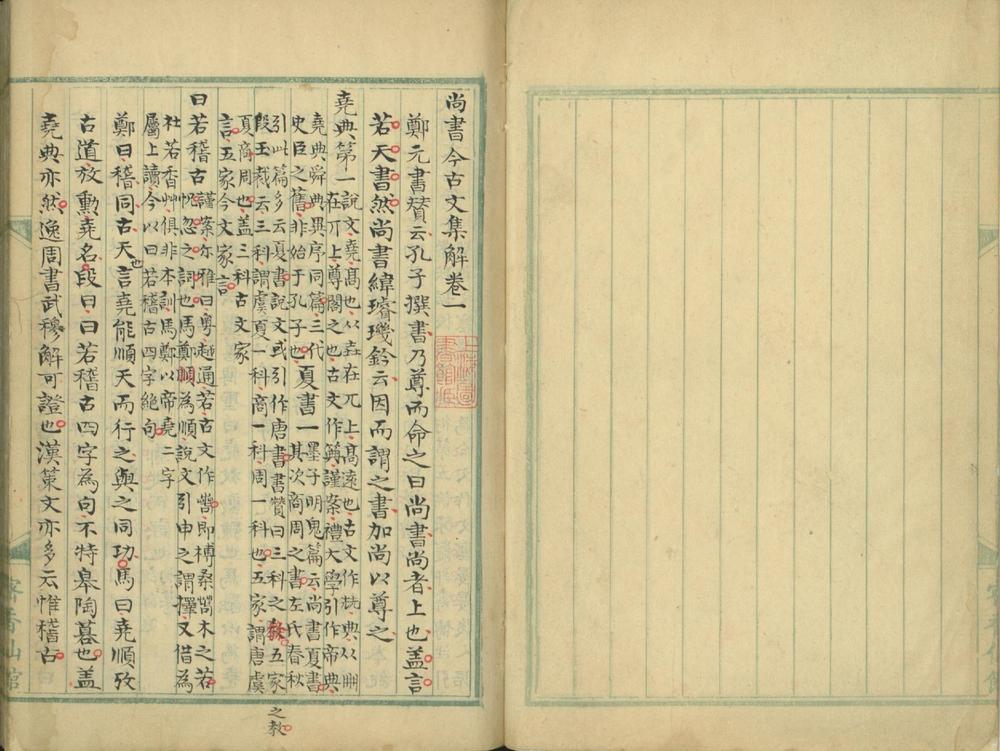 尚書今古文集解卷一
鄭元書贊云孔子撰書乃尊而命之曰尚書尚者上也蓋言
若天書然尚書緯璿璣鈐云因而謂之書加尚以尊之
堯典第一
說文堯高也从垚在兀上高遠也古文作𡋰典从冊
在丌上尊閣之也古文作𥮏謹案禮大學引作帝典
堯典舜典異序同篇三代
史臣之舊非始于孔子也
夏書一
墨子明鬼篇云尚書夏書
其次商周之書左氏春秋
引此篇多云夏書說文或引作唐書書贊曰三科之發五家
之教
段玉裁云三科謂虞夏一科商一科周一科也五家謂唐虞
夏商周也蓋三科古文家
言五家今文家言
曰若稽古
謹案尔雅曰粵越通若古文作𠭥即榑桑𠭥木之若
怳忽之詞也馬鄭順為順說文引申之謂擇又借為
杜若香艸俱非本訓馬鄭以帝堯二字
屬上讀今以曰若稽古四字絕句
鄭曰稽同古天也言堯能順天而行之與之同功馬曰堯順攷
古道放勳堯名段曰曰若稽古四字為句不特皋陶謩也蓋
堯典亦然逸周書武穆解可證也漢策文亦多云惟稽古